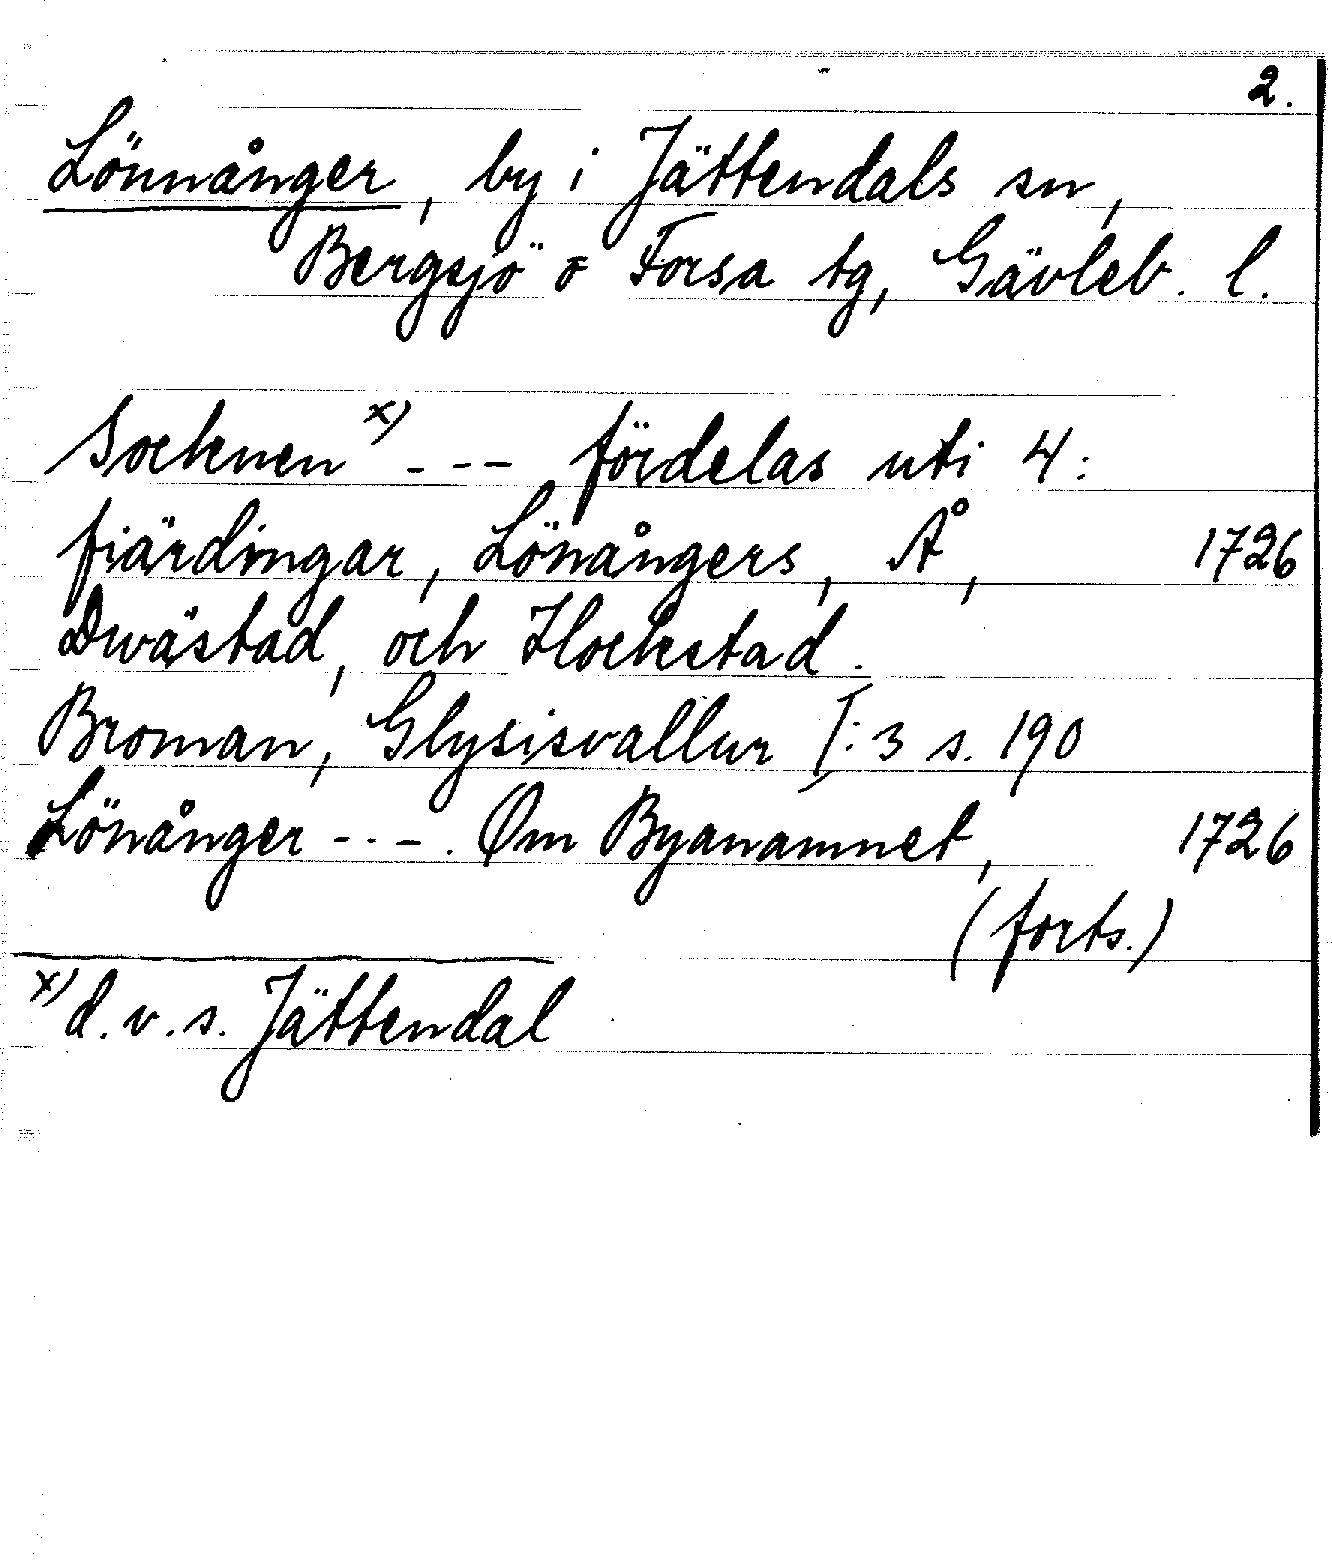 2.
Lönnånger, by i Jättendals sn,
Bergsjö o Forsa tg, Gävleb. l.
Socknen x) --- fördelas uti 4:
fiärdingar, Lönångers, Å, 1726
Dwästad, och Hockstad.
Broman, Glysisvallur I:3 s. 190
Lönånger ---. Om Byanamnet, 1726
(forts.)
x) d.v.s. Jättendal